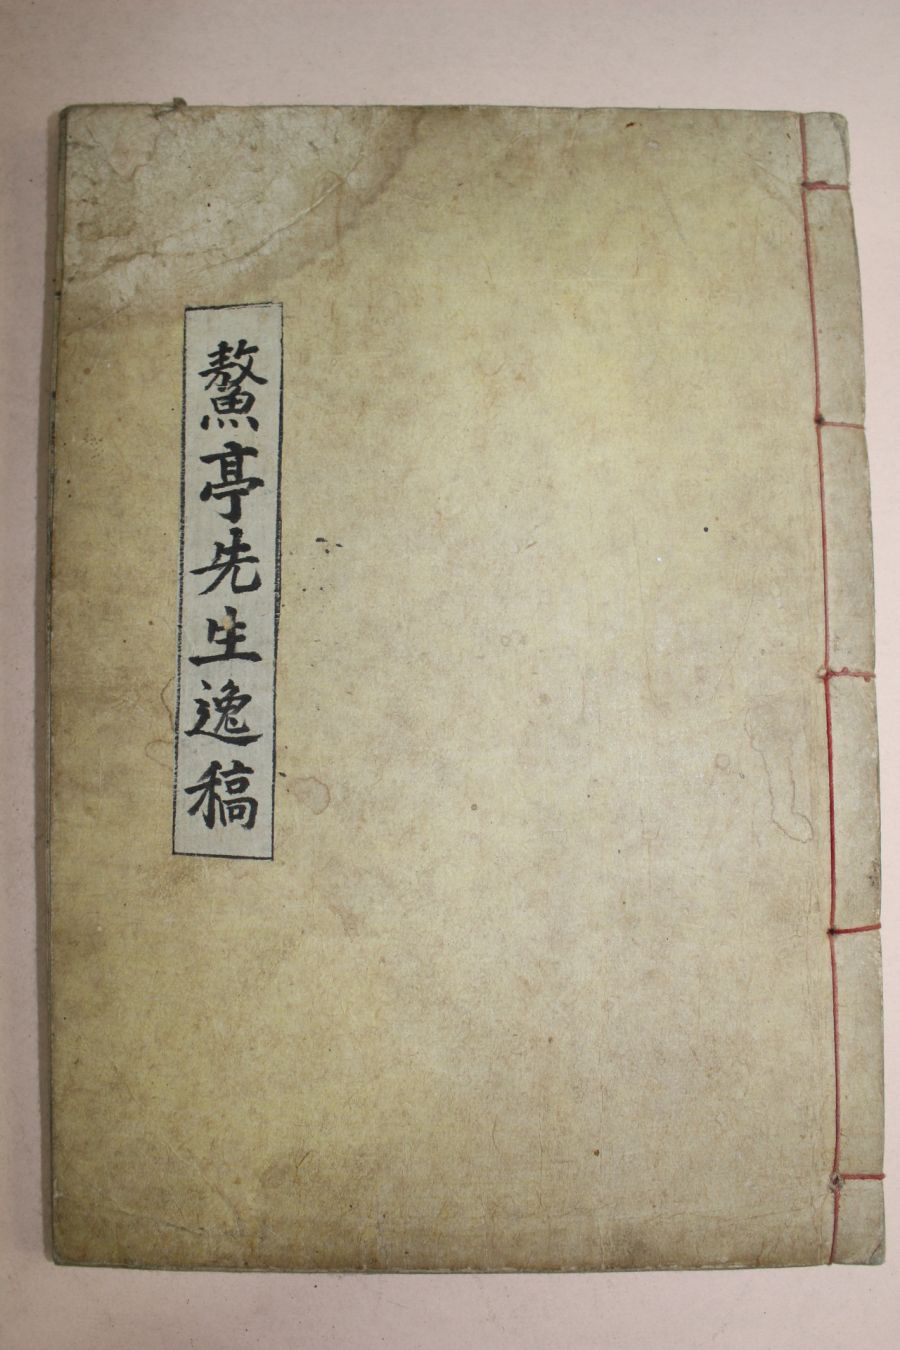 鰲亭先生逸稿